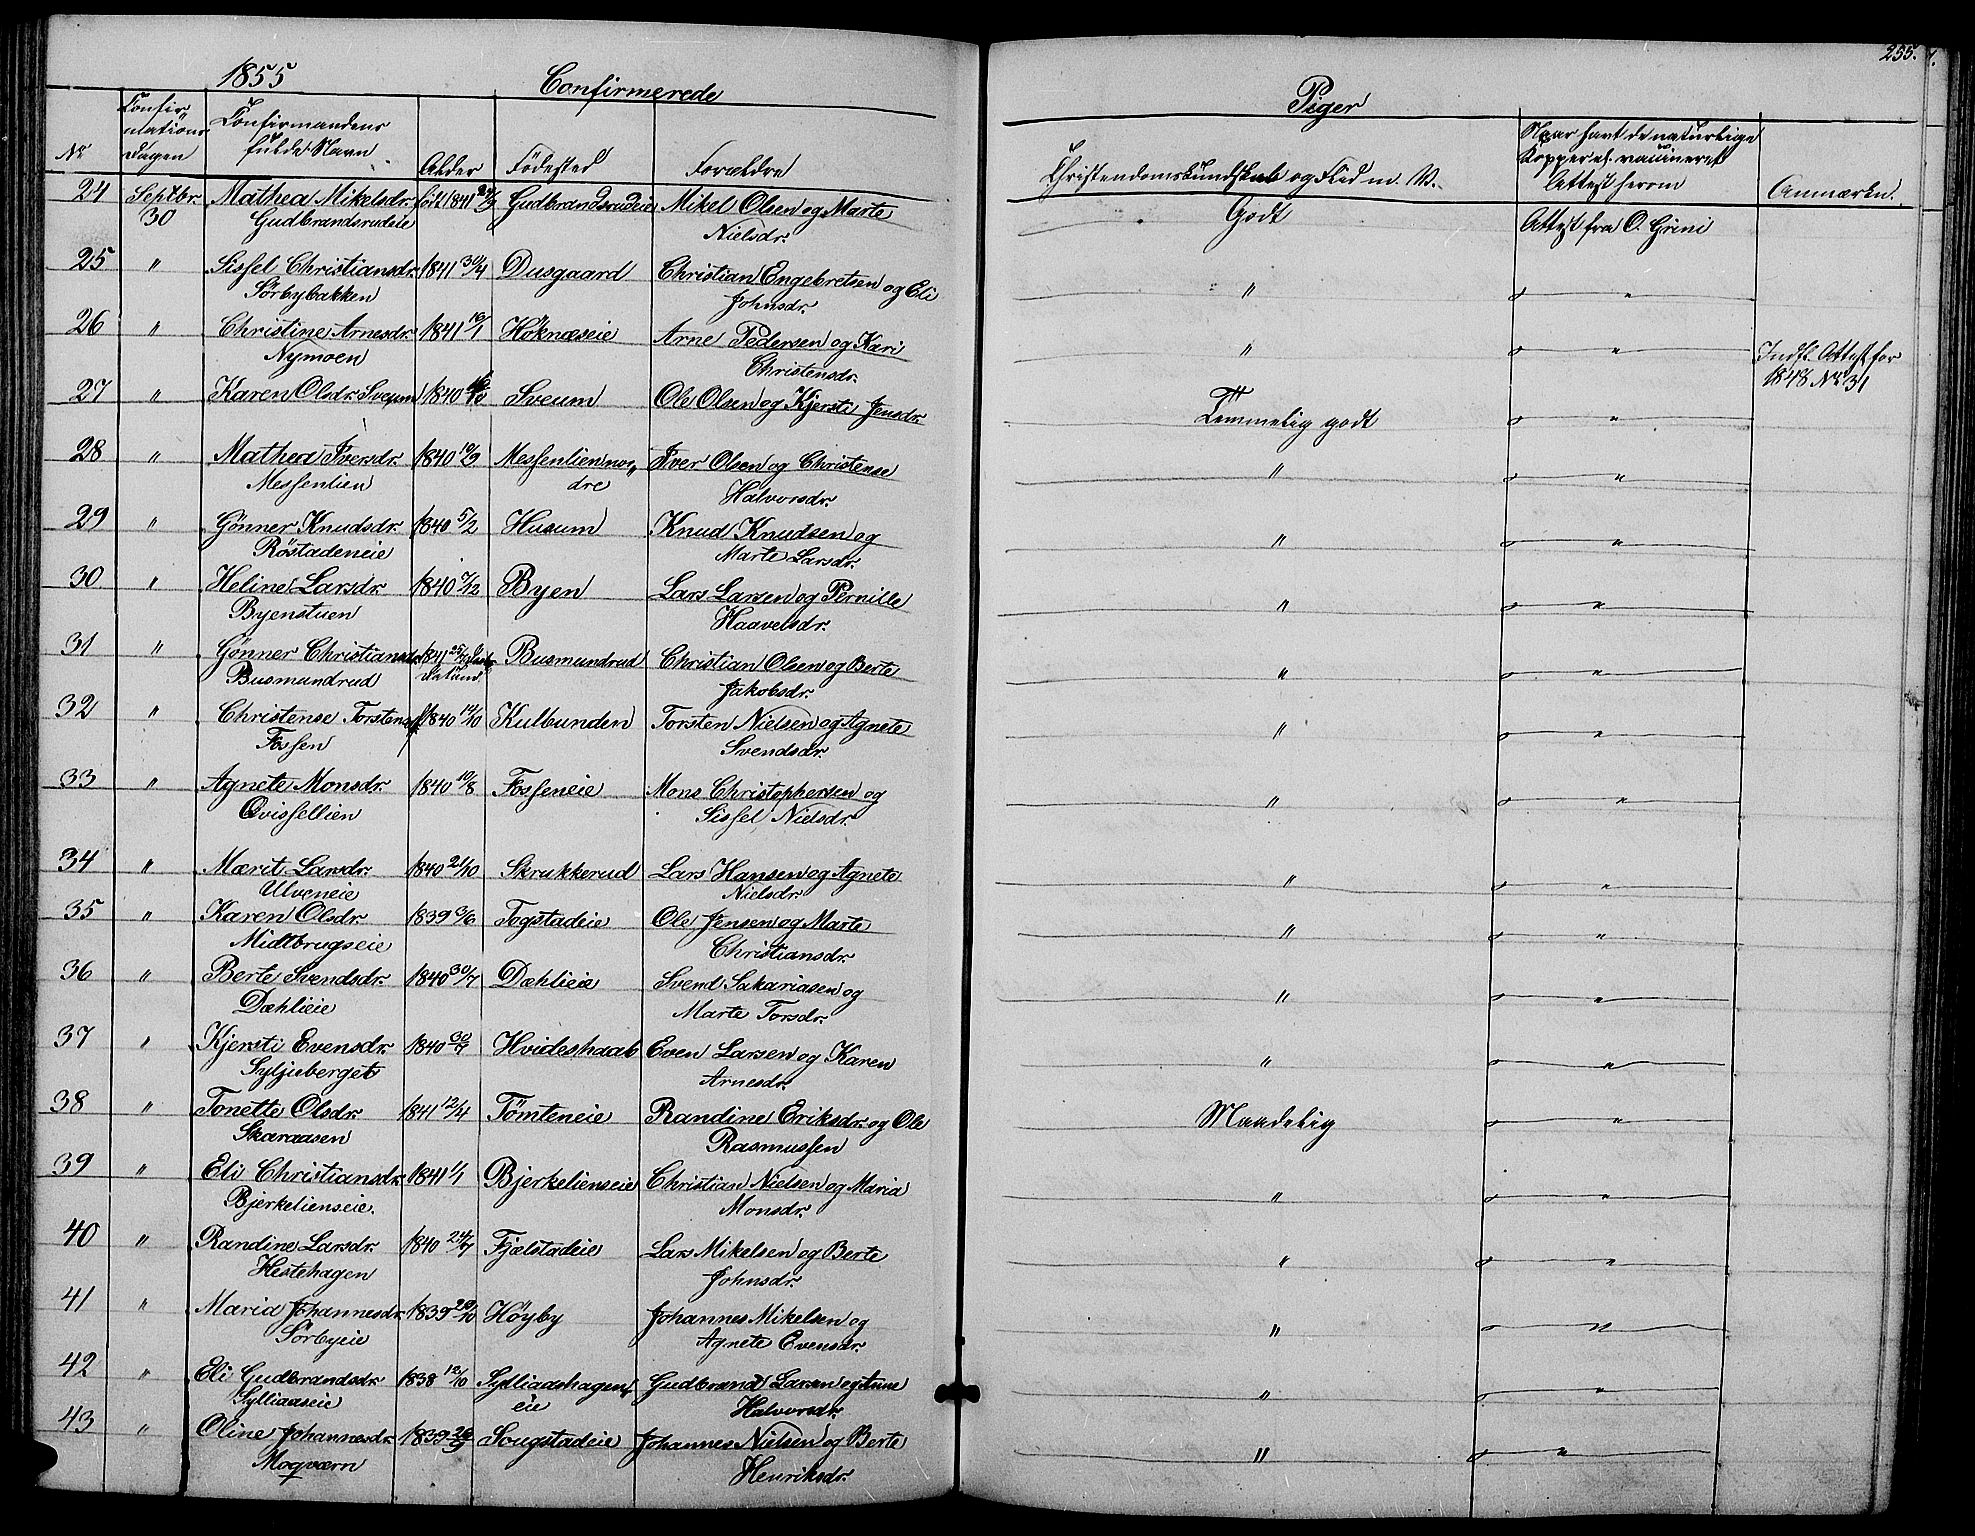 1855 Confirmerede
Piger
255.
No
Confir
mations
Dagen
Confirmandens
fulde Navn
Alder
Födested
Forældre
Christendomskundskab og Flid m. V.
Naar havt de naturlige
Kopper el. vaccineret
Attest herom
Anmærkn.
24 Septbr. Mathea Mikelsdr. Gudbrandsrudeie Mikel Olsen og Marte Godt Attest fra O. Grini
30 Gudbrandsrudeie Nielsdr.
25 " Sissel Christiansdr. 1841 30/4 Dusgaard Christian Engebretsen og Eli " "
Sörbybakken Johnsdr.
26 " Christine Arnesdr. 1841 16/1 Höknæseie Arne Pedersen og Kari " " Indfl. Attest for
Nymoen Christensdr. 1848 No 31
27 " Karen Olsdr. Sveum 1840 Sveum Ole Olsen og Kjersti Jensdr. Temmelig godt "
28 " Mathea Iversdr. 1840 10/9 Messenlien nor„ Iver Olsen og Christense " "
Messenlien dre Halvorsdr.
29 " Gönner Knudsdr. 1840 5/2 Husum Knud Knudsen og " "
Röstadeneie Marte Larsdr.
30 " Heline Larsdr. 1840 Byen Lars Larsen og Pernille " "
Byenstuen Haavelsdr.
31 " Gönner Christiansdr. 1841 Busmundrud Christian Olsen og Berte " "
Busmundrud Jakobsdr.
32 " Christense Torstensdr. 1840 14/10 Kulbunden Torsten Nielsen og Agnete " "
Fossen Svendsdr.
33 " Agnete Monsdr. 1840 10/8 Fosseneie Mons Christophersen og " "
Qvissellien Sissel Nielsdr.
34 " Mærit Larsdr. 1840 21/10 Skrukkerud Lars Hansen og Agnete " "
Ulveneie Nielsdr.
35 " Karen Olsdr. 1839 3/6 Togstadeie Ole Jensen og Marte " "
Midtbrugseie Christiansdr.
36 " Berte Svendsdr. 1840 30/7 Dæhlieie Svend Sakariasen og " "
Dæhlieie Marte Torsdr.
37 " Kjersti Evensdr. 1840 30/7 Hvideshaab Even Larsen og Karen " "
Syljuberget Arnesdr.
38 " Tonette Olsdr. 1841 12/4 Tömteneie Randine Eriksdr. og Ole Maadelig "
Skaraasen Rasmussen
39 " Eli Christiansdr. 1841 1/1 Bjerkelienseie Christian Nielsen og Maria " "
Bjerkelienseie. Monsdr.
40 " Randine Larsdr. 1840 24/7 Fjelstadeie Lars Mikelsen og Berte " "
Hestehagen Johnsdr.
41 " Maria Johannesdr. 1839 29/10 Höyby Johannes Mikelsen og " "
Sörbyeie Agnete Evensdr.
42 " Eli Gudbrandsdr. 1838 12/10 Sylliaashagen„ Gudbrand Larsen og Anne " "
Sylliaaseie eie Halvorsdr.
43 " Oline Johannesdr. 1839 Sougstadeie Johannes Nielsen og Berte " "
Moqværn Henriksdr.